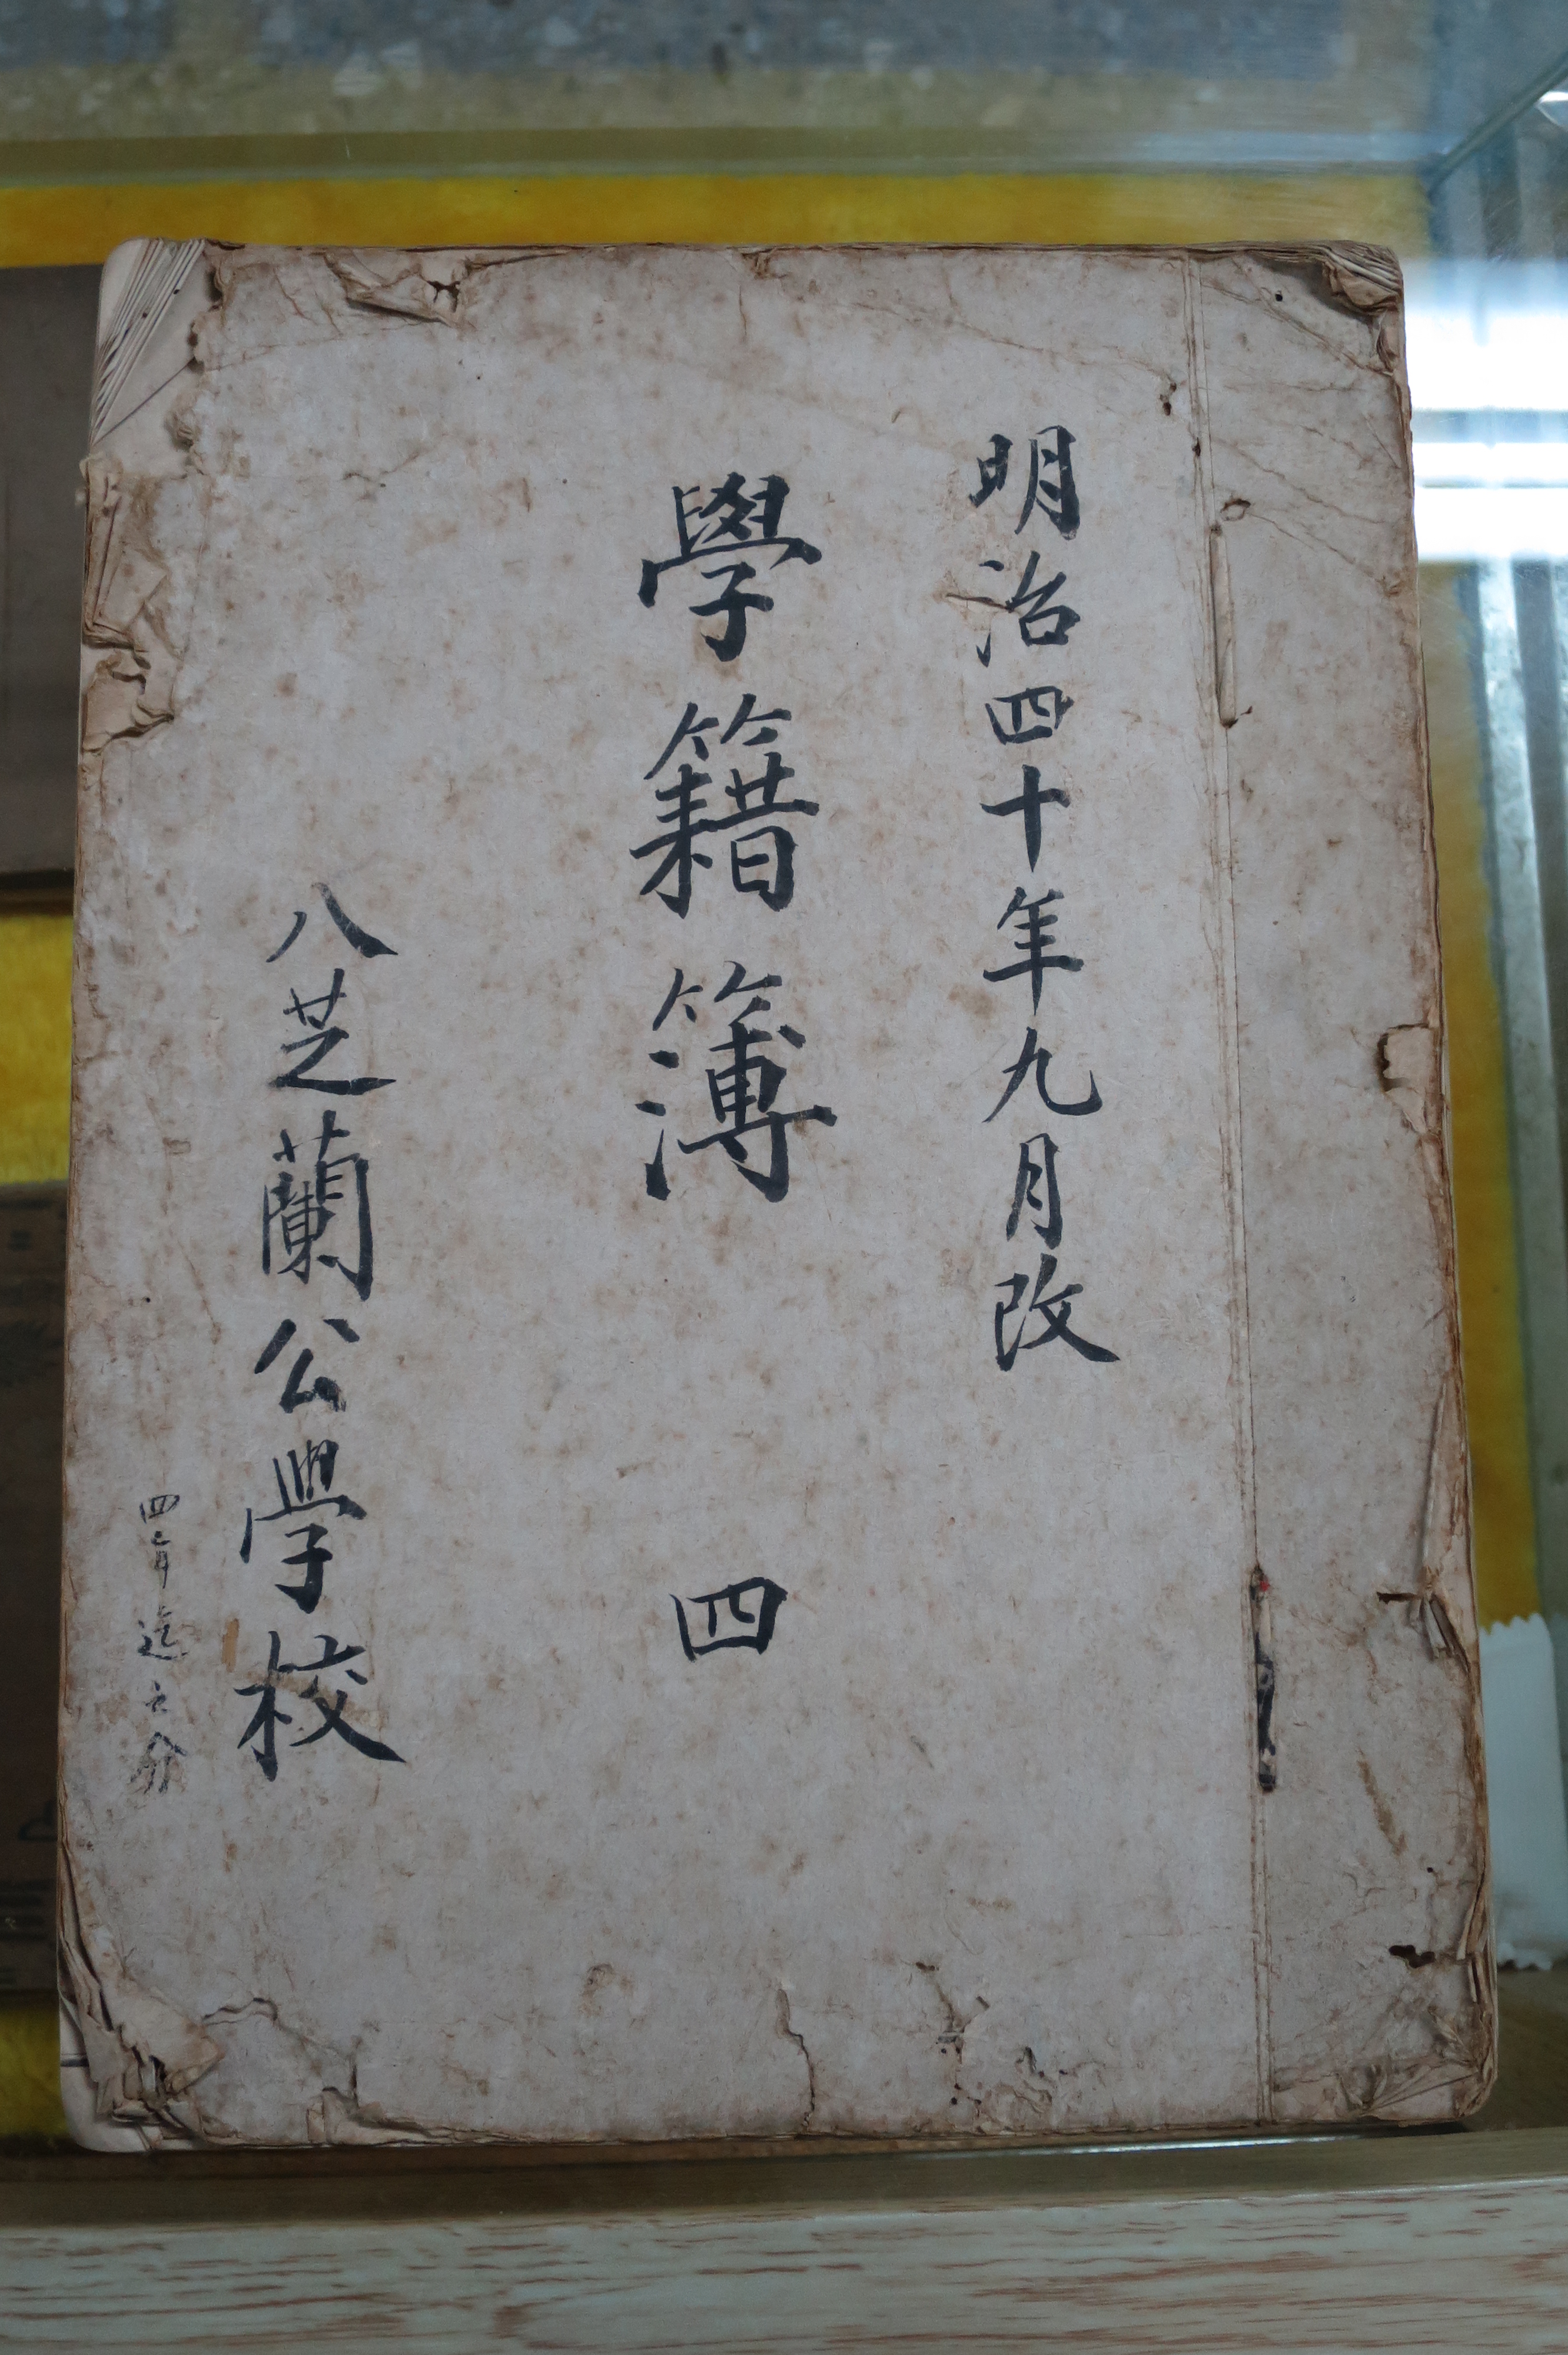 明治四十年九月改
學籍簿 四
八芝蘭公學校
四年迄之分